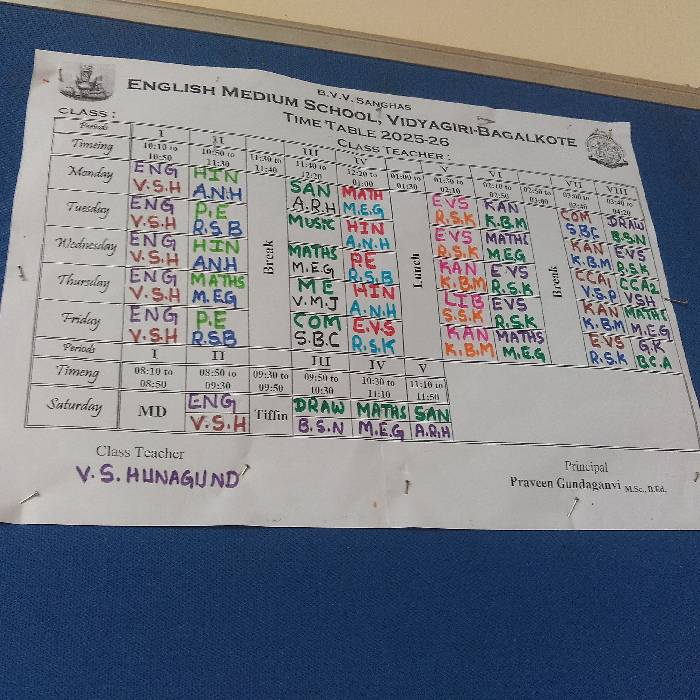 B.V.V. SANGHAS
ENGLISH MEDIUM SCHOOL, VIDYAGIRI-BAGALKOTE
TIME TABLE 2025-26
CLASS : CLASS TEACHER :
Periods I II III IV V VI VII VIII
Timeing 10:10 to 10:50 10:50 to 11:30 11:30 to 11:40 11:40 to 12:20 12:20 to 01:00 01:00 to 01:30 01:30 to 02:10 02:10 to 02:50 02:50 to 03:00 03:00 to 03:40 03:40 to 04:20
Monday ENG HIN SAN MATH EVS KAN COM DRAW
V.S.H A.N.H A.R.H M.E.G R.S.K K.B.M SBC B.S.N
Tuesday ENG P.E MUSIC HIN EVS MATHS KAN EVS
V.S.H R.S.B A.N.H R.S.K M.E.G K.B.M R.S.K
Wednesday ENG HIN Break MATHS P.E Lunch KAN EVS Break CCA1 CCA2
V.S.H ANH M.E.G R.S.B K.B.M R.S.K V.S.P VSH
Thursday ENG MATHS M E HIN LIB EVS KAN MATHS
V.S.H M.E.G V.M.J A.N.H S.S.K R.S.K K.B.M M.E.G
Friday ENG P.E COM E.V.S KAN MATHS EVS G.K
V.S.H R.S.B S.B.C R.S.K K.B.M M.E.G R.S.K BC.A
Periods I II III IV V
Timeng 08:10 to 08:50 08:50 to 09:30 09:30 to 09:50 09:50 to 10:30 10:30 to 11:10 11:10 to 11:50
Saturday MD ENG Tiffin DRAW MATHS SAN
V.S.H B.S.N M.E.G A.R.H
Class Teacher
V.S.HUNAGUND
Principal
Praveen Gundaganvi M.Sc., B.Ed.